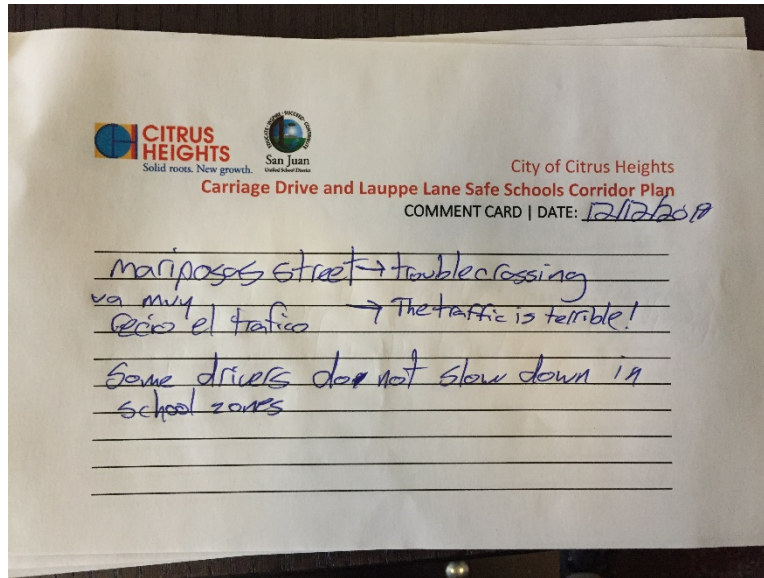 CITRUS
HEIGHTS
Solid roots. New growth.
San Juan
Unified School District
City of Citrus Heights
Carriage Drive and Lauppe Lane Safe Schools Corridor Plan
COMMENT CARD | DATE: 12/12/2019
mariposas street → trouble crossing
va muy
recio el trafico → The traffic is terrible!
Some drivers do not slow down in
school zones